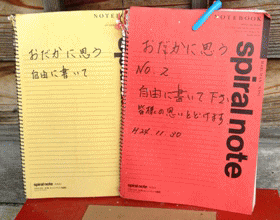 NOTEBOOK
おだかに思う
自由に書いて
spiral note
NOTEBOOK
おだかに思う
NO.2
自由に書いて下さい
皆様の思いとどけます
H28.11.30
spiral note
spiral note